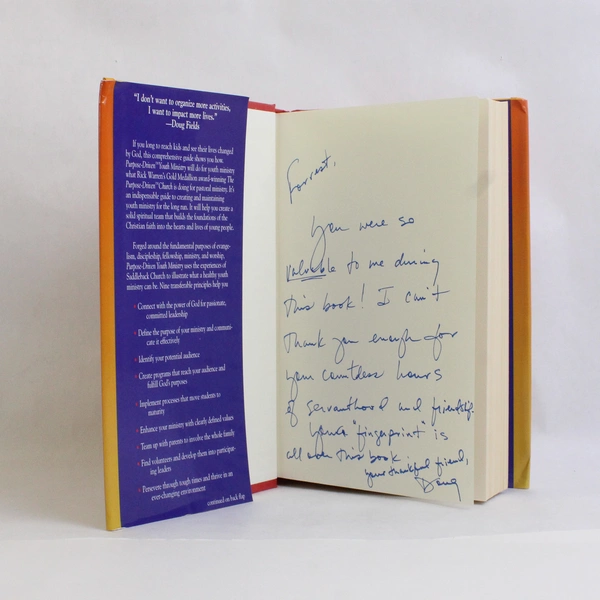 "I don't want to organize more activities,
I want to impact more lives."
—Doug Fields
If you long to reach kids and see their lives changed
by God, this comprehensive guide shows you how.
Purpose-Driven™ Youth Ministry will do for youth ministry
what Rick Warren's Gold Medallion award-winning The
Purpose-Driven™ Church is doing for pastoral ministry. It's
an indispensable guide to creating and maintaining
youth ministry for the long run. It will help you create a
solid spiritual team that builds the foundations of the
Christian faith into the hearts and lives of young people.
Forged around the fundamental purposes of evange-
lism, discipleship, fellowship, ministry, and worship,
Purpose-Driven Youth Ministry uses the experiences of
Saddleback Church to illustrate what a healthy youth
ministry can be. Nine transferable principles help you
• Connect with the power of God for passionate,
committed leadership
• Define the purpose of your ministry and communi-
cate it effectively
• Identify your potential audience
• Create programs that reach your audience and
fulfill God's purposes
• Implement processes that move students to
maturity
• Enhance your ministry with clearly defined values
• Team up with parents to involve the whole family
• Find volunteers and develop them into participat-
ing leaders
• Persevere through tough times and thrive in an
ever-changing environment
continued on back flap
Forrest,
You were so
valuable to me during
this book! I can't
thank you enough for
your countless hours
of servanthood and friendship.
Your "fingerprint" is
all over this book.
your thankful friend,
Doug